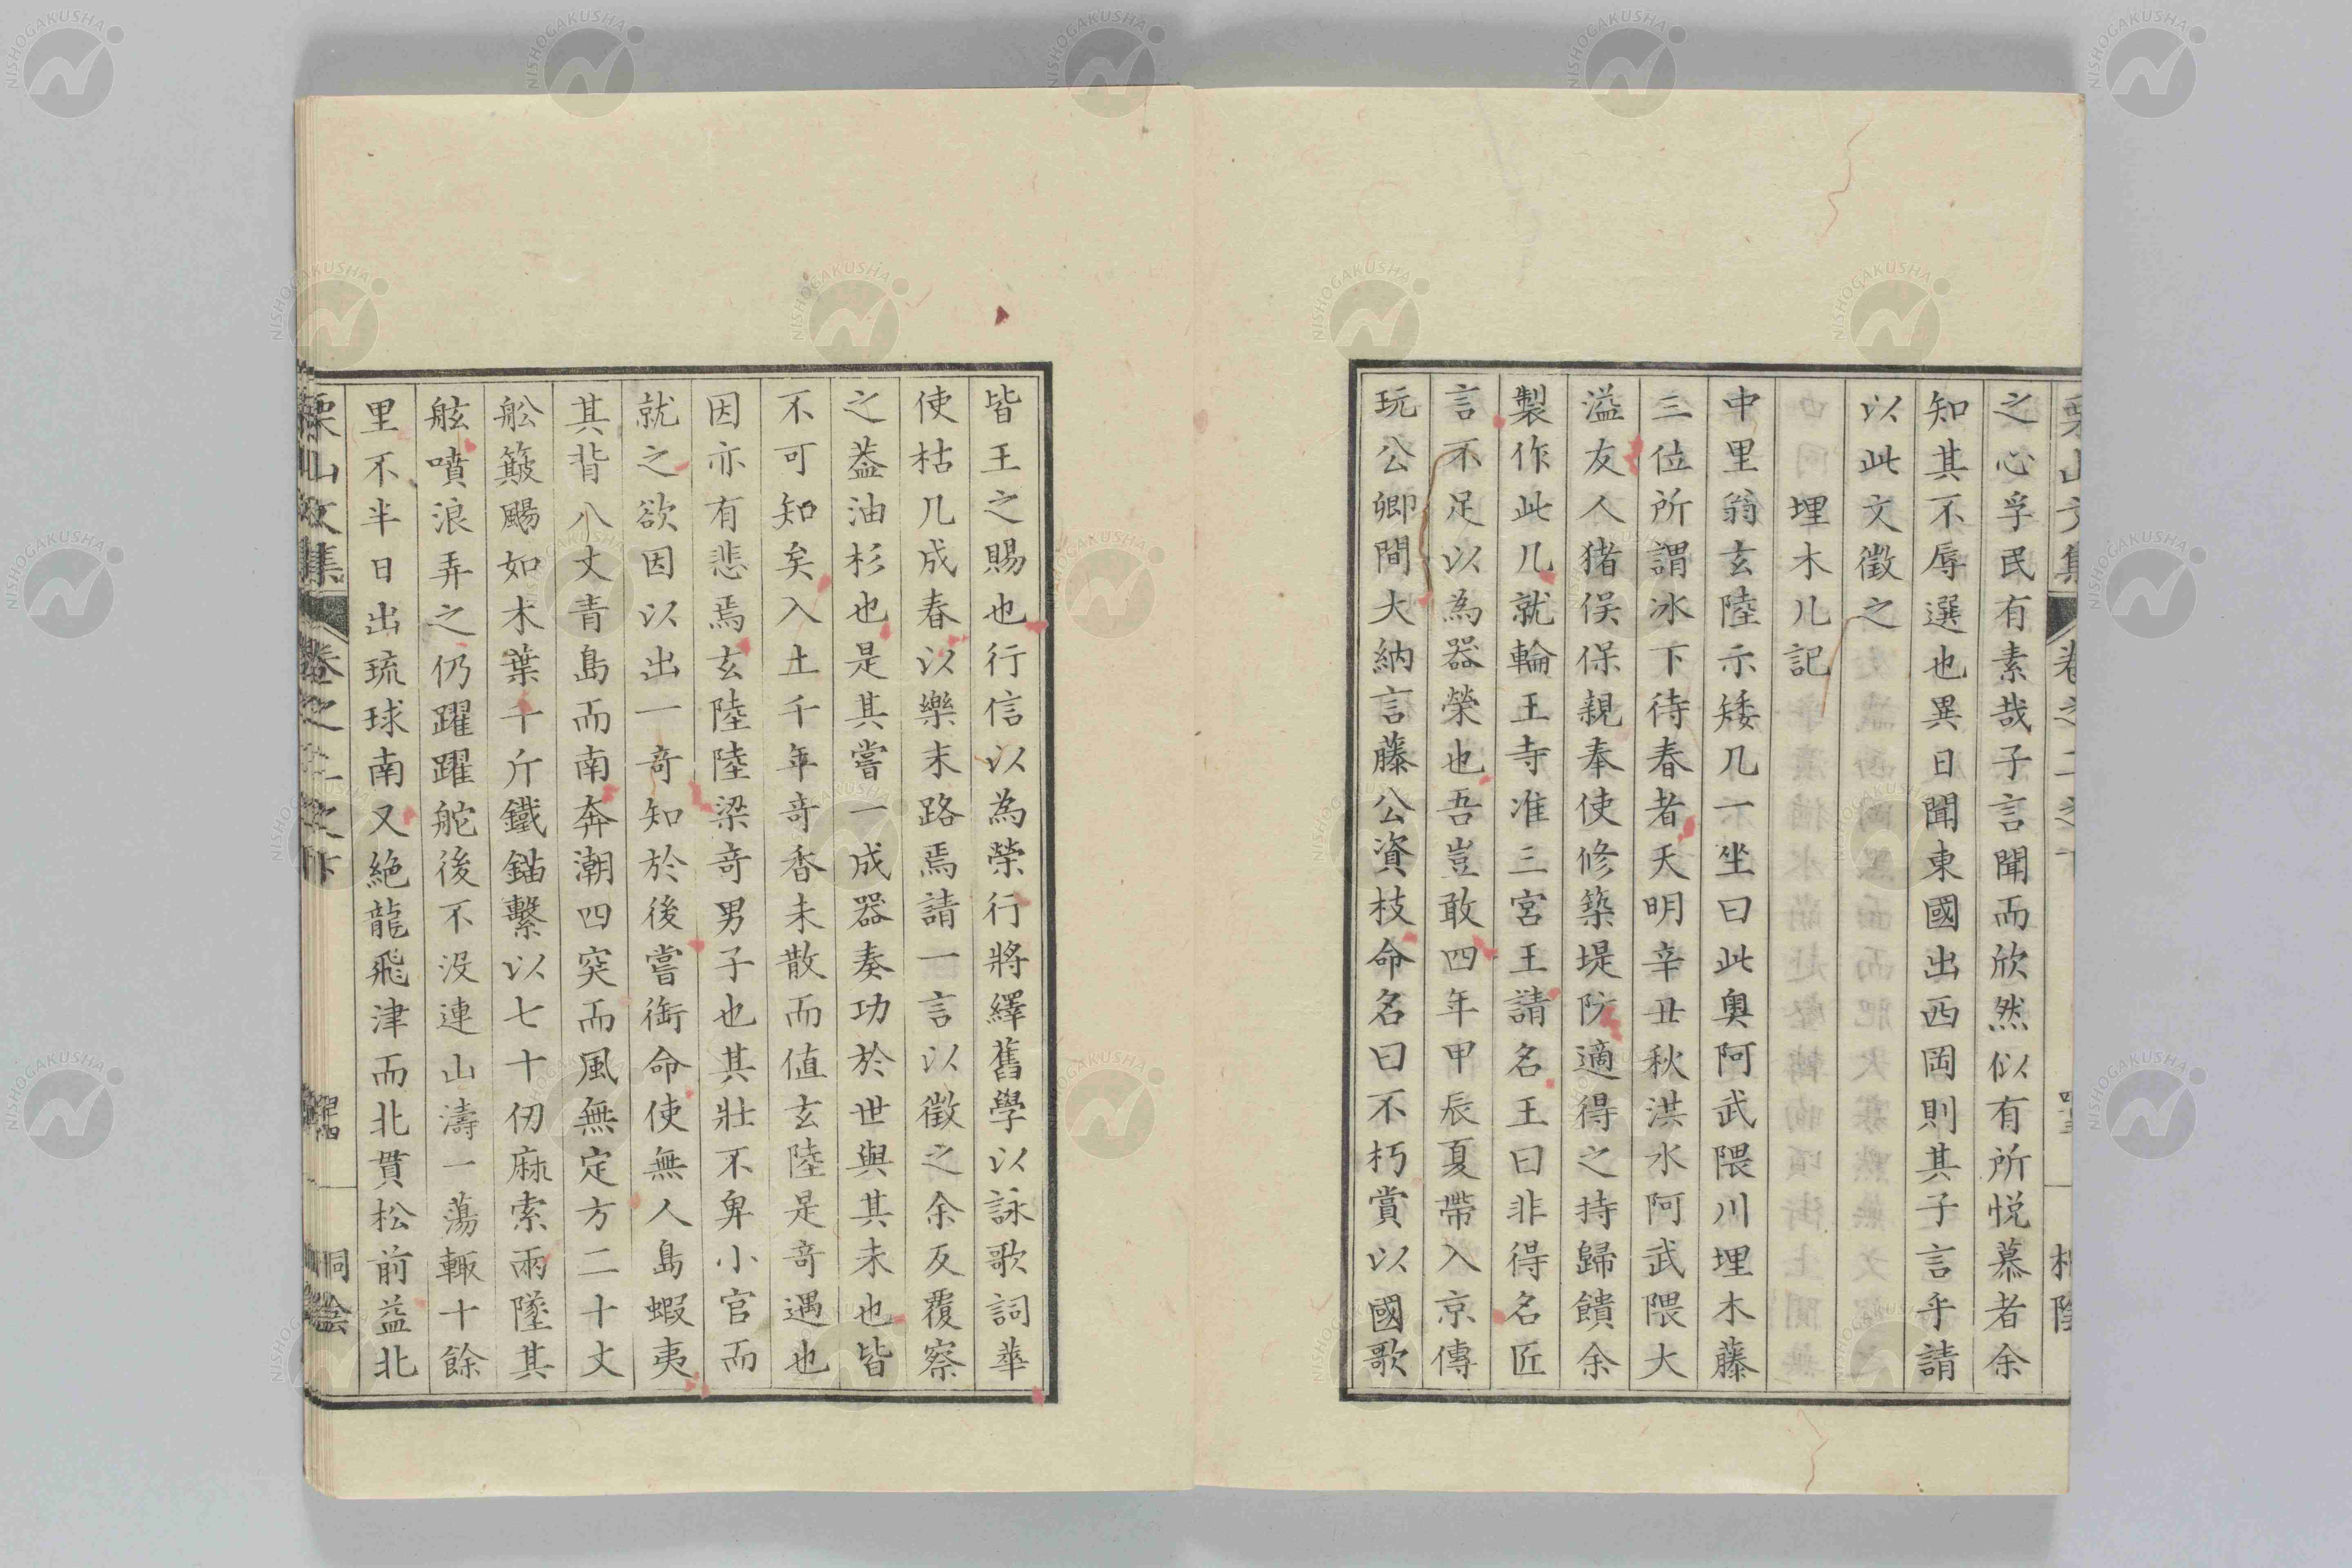 之心孚民有素哉子言聞而欣然似有所悦慕者余
知其不辱選也異日聞東國出西岡則其子言乎請
以此文徵之
埋木几記
中里翁玄陸示矮几一坐曰此奥阿武隈川埋木藤
三位所謂冰下待春者天明辛丑秋洪水阿武隈大
溢友人猪俣保親奉使修築堤防適得之持歸饋余
製作此几就輪王寺准三宮王請名王曰非得名匠
言不足以為器榮也吾豈敢四年甲辰夏帶入京傳
玩公卿間大納言藤公資枝命名曰不朽賞以國歌
皆王之賜也行信以為榮行將繹舊學以詠歌詞華
使枯几成春以樂末路焉請一言以徵之余反覆察
之葢油杉也是其嘗一成器奏功於世與其未也皆
不可知矣入土千年竒香未散而值玄陸是竒遇也
因亦有悲焉玄陸陸梁竒男子也其壯不卑小官而
就之欲因以出一竒知於後嘗銜命使無人島蝦夷
其背八丈青島而南奔潮四突而風無定方二十丈
舩簸颺如木葉千斤鐵錨繫以七十仞麻索兩墜其
舷噴浪弄之仍躍躍舵後不没連山濤一蕩輙十餘
里不半日出琉球南又絶龍飛津而北貫松前益北
栗山文集
卷之二之下
NISHOGAKUSHA